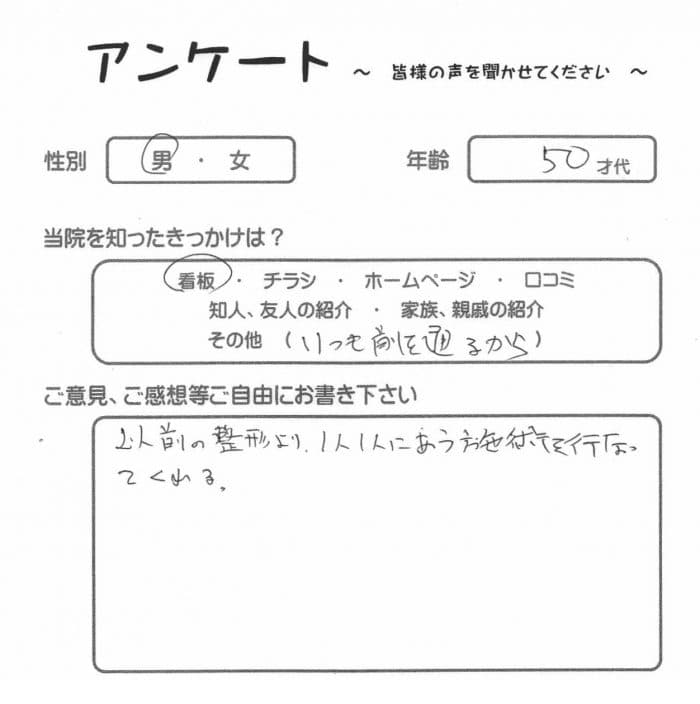 アンケート ～ 皆様の声を聞かせてください ～
性別 男 ・ 女 年齢 50 才代
当院を知ったきっかけは？
看板 ・ チラシ ・ ホームページ ・ 口コミ
知人、友人の紹介 ・ 家族、親戚の紹介
その他 （いつも前を通るから）
ご意見、ご感想等ご自由にお書き下さい
以前の整形より、1人1人にあう施術を行なっ
てくれる。